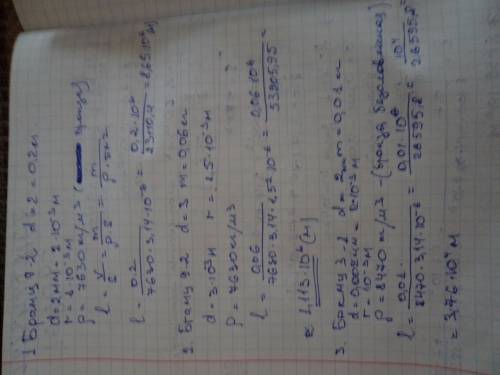 1 БрАМЦ 9.2 d=2 = 0.2 м
d = 2 мм = 2·10⁻³ м
r = 1·10⁻³ м
ρ = 7630 кг/м³ ( бронза)
l = V/S = m/ρ·S = m/ρ·πr²
l = 0.2 / 7630·3,14·10⁻⁶ = 0.2·10⁶ / 23110,4 = 8,65·10⁶ (м)
2. БрАМЦ 9.2 d=3 m=0,06 кг
d = 3·10⁻³ м r = 1.5·10⁻³ м
ρ = 7630 кг/м³
l = 0,06 / 7630·3,14·1,5²·10⁻⁶ = 0,06·10⁶ / 53905,95 =
≈ 1.113·10⁶ (м)
3. d = 2 мм m = 0,01 кг
d = 0,002 мм = 2·10⁻³ м
r = 10⁻³ м
ρ = 8470 кг/м³ - (бронза безоловянная)
l = 0,01 / 8470·3,14·10⁻⁶ = 0,01·10⁶ / 26595,8 = 10⁴ / 26595,8
= 3,76·10⁴ м